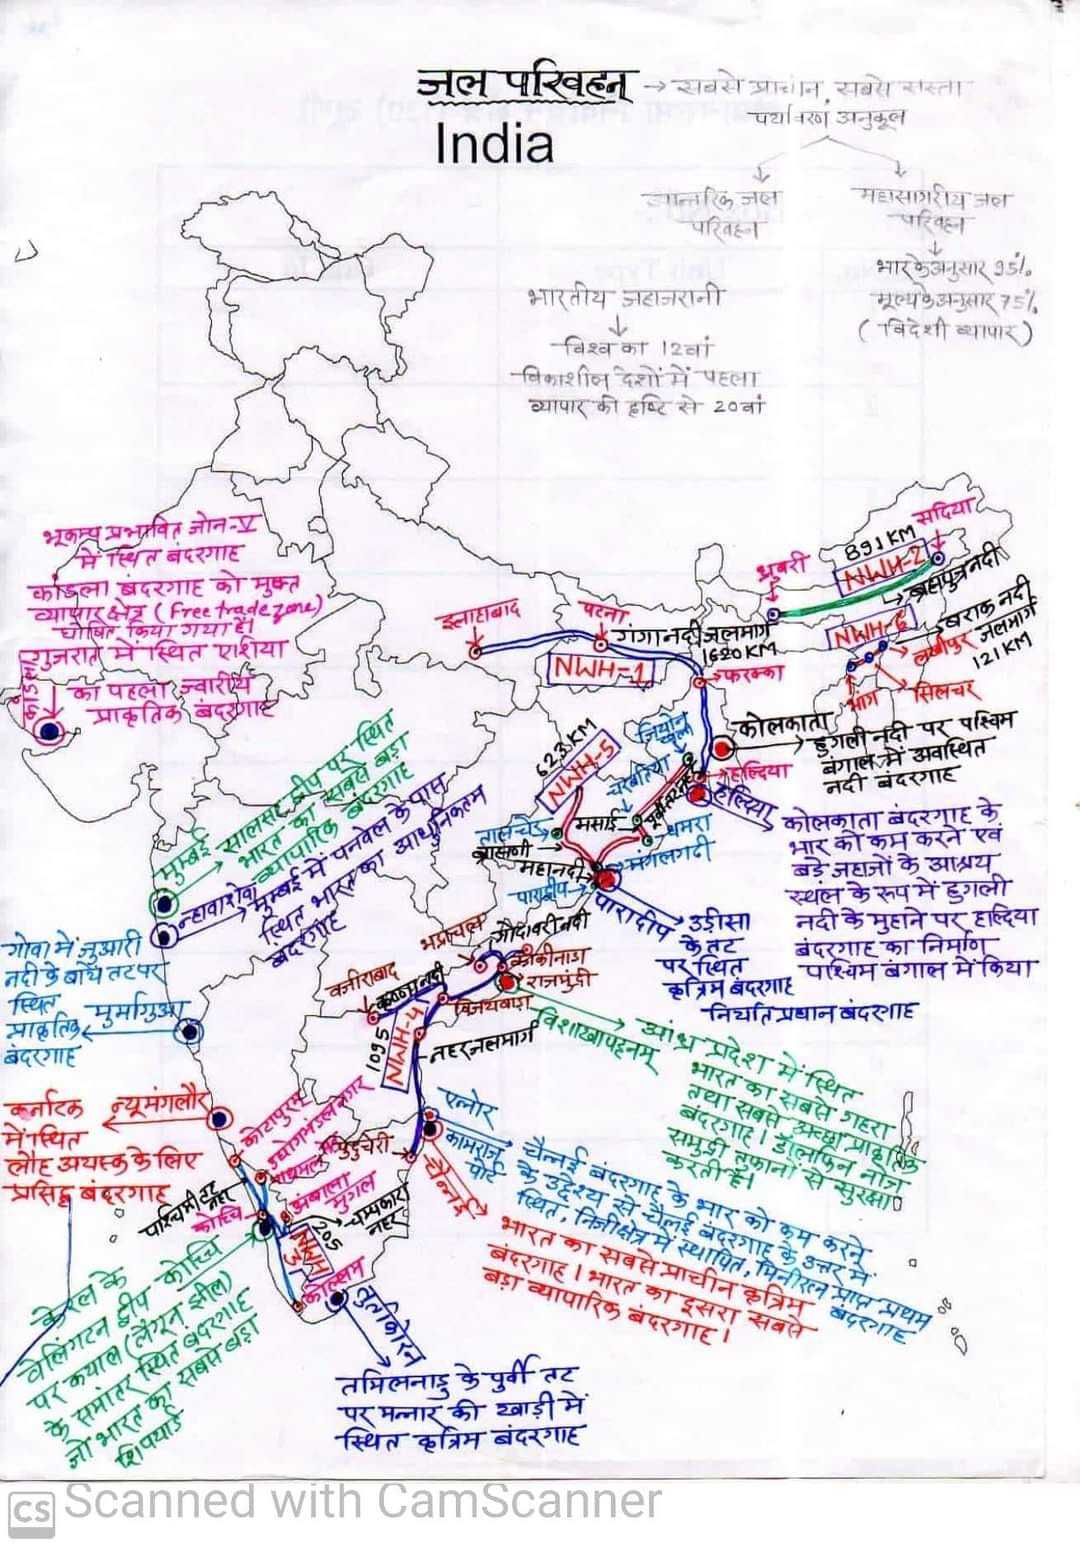 जल परिवहन → सबसे प्राचीन, सबसे सस्ता
पर्यावरण अनुकूल
India
आन्तरिक जल
परिवहन
महासागरीय जल
परिवहन
भार के अनुसार 95%
मूल्य के अनुसार 75%
(विदेशी व्यापार)
भारतीय जहाजरानी
विश्व का 12वां
विकाशील देशों में पहला
व्यापार की दृष्टि से 20वां
भूकम्प प्रभावित जोन-V
में स्थित बंदरगाह
कांडला बंदरगाह को मुक्त
व्यापार क्षेत्र (Free trade zone)
घोषित किया गया है।
गुजरात में स्थित एशिया
का पहला ज्वारीय
प्राकृतिक बंदरगाह
कांडला
इलाहाबाद
पटना
गंगा नदी जलमार्ग
1620 KM
NWH-1
फरक्का
सदिया
891 KM
NWH-2
ब्रह्मपुत्र नदी
धुबरी
NWH-6
बराक नदी
जलमार्ग
121 KM
लखीपुर
सिलचर
भांग
कोलकाता
हुगली नदी पर पश्चिम
बंगाल में अवस्थित
नदी बंदरगाह
हल्दिया
हल्दिया
कोलकाता बंदरगाह के
भार को कम करने एवं
बड़े जहाजों के आश्रय
स्थल के रूप में हुगली
नदी के मुहाने पर हल्दिया
बंदरगाह का निर्माण
पश्चिम बंगाल में किया
623 KM
NWH-5
चरबतिया
तालचेर
ब्राह्मणी
महानदी
पारादीप
धमरा
मंगलगढी
पारादीप
उड़ीसा
के तट
पर स्थित
कृत्रिम बंदरगाह
निर्यात प्रधान बंदरगाह
मुम्बई
सालसट द्वीप पर स्थित
भारत का सबसे बड़ा
व्यापारिक बंदरगाह
न्हावाशेवा
मुम्बई में पनवेल के पास
स्थित भारत का आधुनिकतम
बंदरगाह
गोवा में जुआरी
नदी के बायें तट पर
स्थित
प्राकृतिक
बंदरगाह
मुर्मागुआ
भद्राचलम
गोदावरी नदी
काकीनाडा
राजमुंद्री
वजीराबाद
कृष्णा नदी
विजयवाडा
1095
NWH-4
नहर जलमार्ग
विशाखापट्टनम्
आंध्र प्रदेश में स्थित
भारत का सबसे गहरा
तथा सबसे अच्छा प्राकृतिक
बंदरगाह। डॉल्फिन नोज
समुद्री तूफानों से सुरक्षा
करती है।
कर्नाटक
में स्थित
लौह अयस्क के लिए
प्रसिद्ध बंदरगाह
न्यू मंगलौर
कोटापुरम
उद्योगमंडल नगर
पुडुचेरी
पश्चिमी तट
नहर
कोच्चि
चम्पकारा
नहर
205
NWH
3
कोल्लम
एन्नोर
कामराज
पोर्ट
चैन्नई बंदरगाह के भार को कम करने
के उद्देश्य से चैन्नई बंदरगाह के उत्तर में
स्थित, निजीक्षेत्र में स्थापित, मिनीरत्न प्राप्त प्रथम
बंदरगाह
चैन्नई
भारत का सबसे प्राचीन कृत्रिम
बंदरगाह। भारत का दूसरा सबसे
बड़ा व्यापारिक बंदरगाह।
केरल के
वेलिंगटन द्वीप कोच्चि
पर कयाल (लैगून झील)
के समांतर स्थित बंदरगाह
जो भारत का सबसे बड़ा
शिपयार्ड
तुतीकोरिन
तमिलनाडु के पुर्वी तट
पर मन्नार की खाड़ी में
स्थित कृत्रिम बंदरगाह
CS Scanned with CamScanner